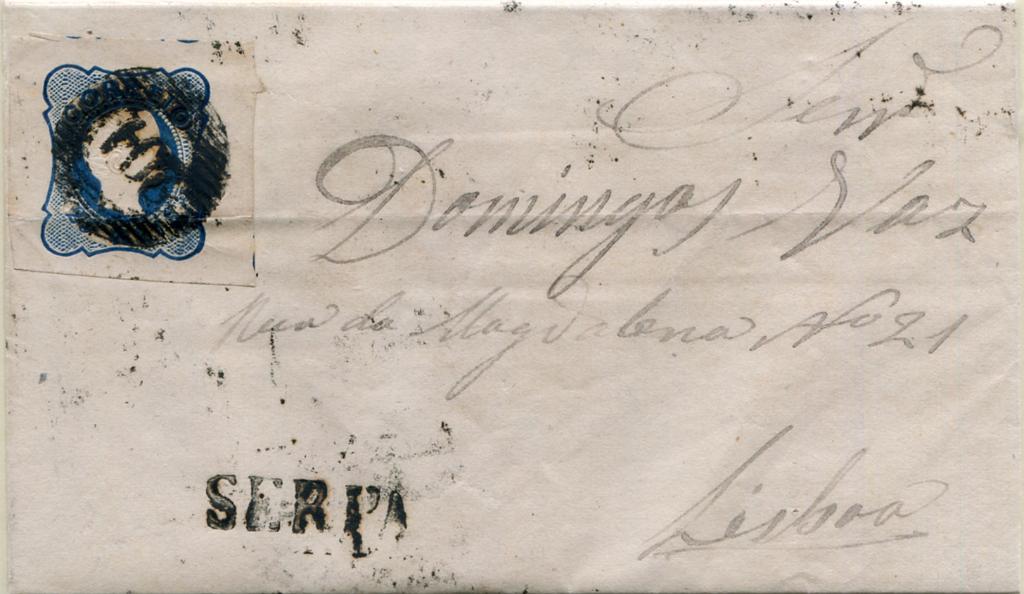 CORREIO
Senr
Domingos Vaz
Rua da Magdalena No 21
SERPA
Lisboa